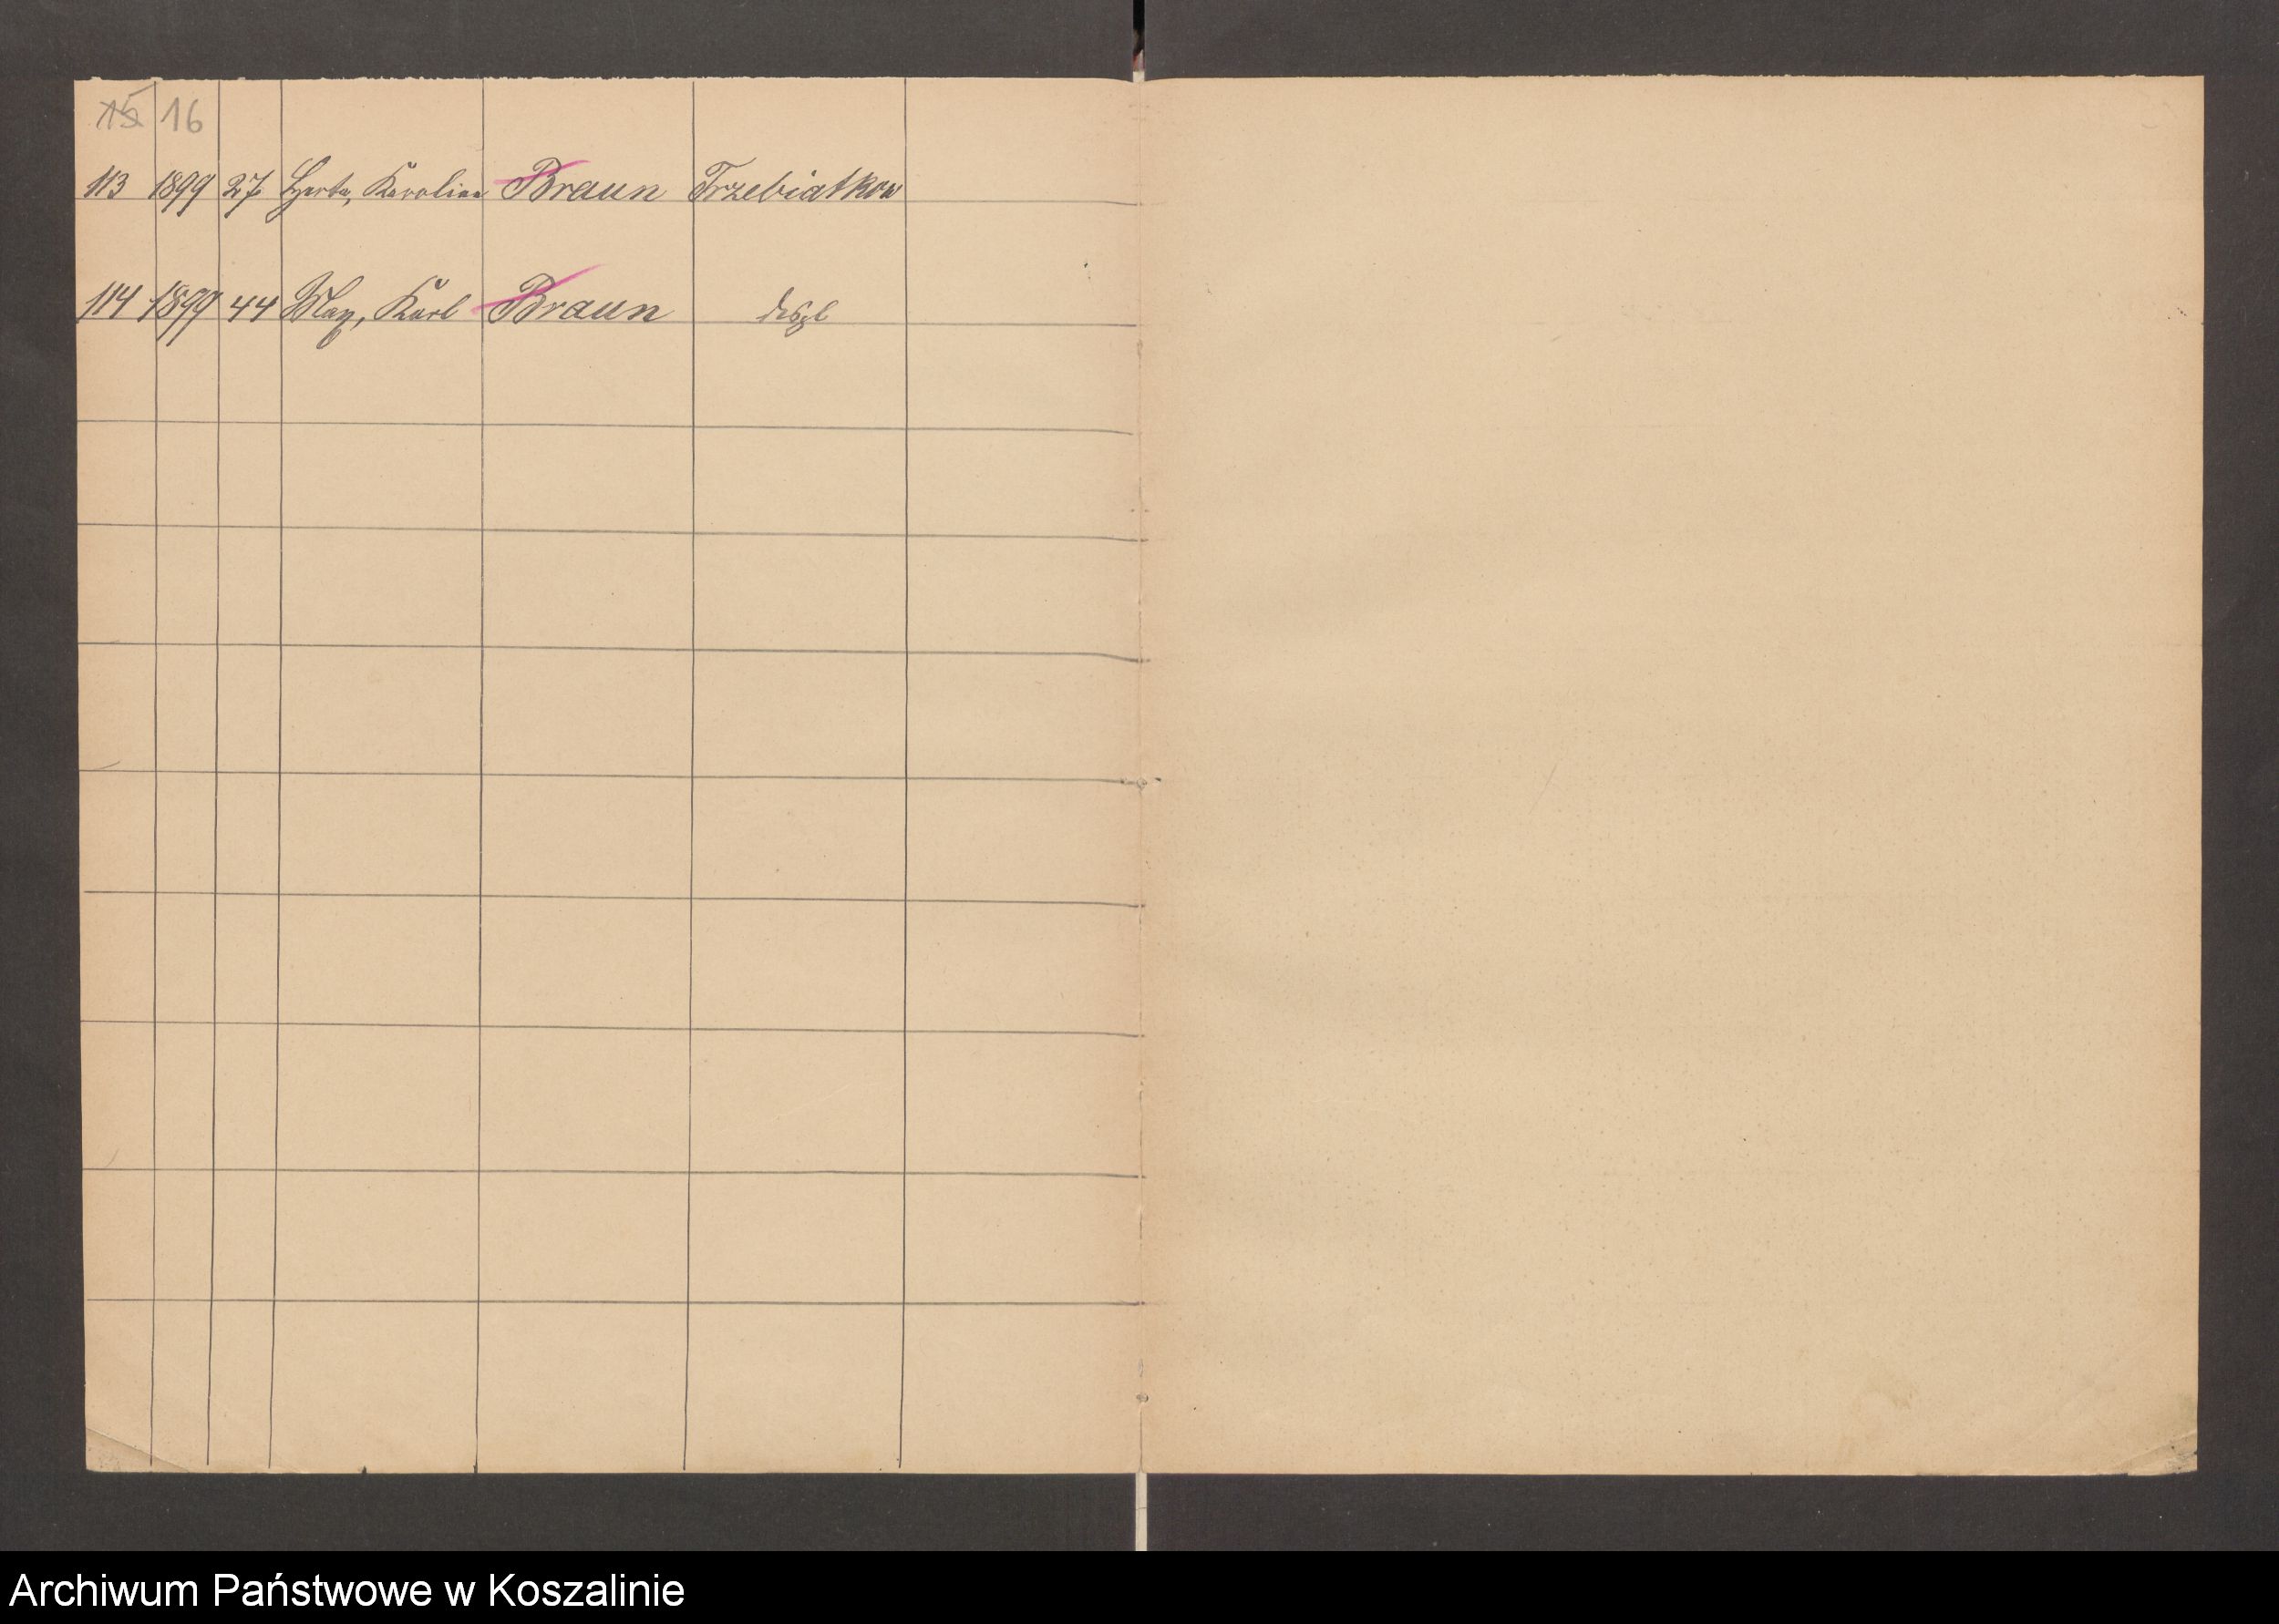 15 16
113 1899 27 Herta, Karoline Braun Trzebiatkow
114 1899 44 Max, Karl Braun desgl
Archiwum Państwowe w Koszalinie